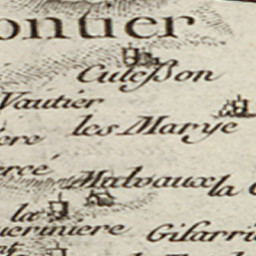 ontier
Culeßon
Vautier
les Marye
ere
rcé
Malvaux la
la
ueriniere Gisarri